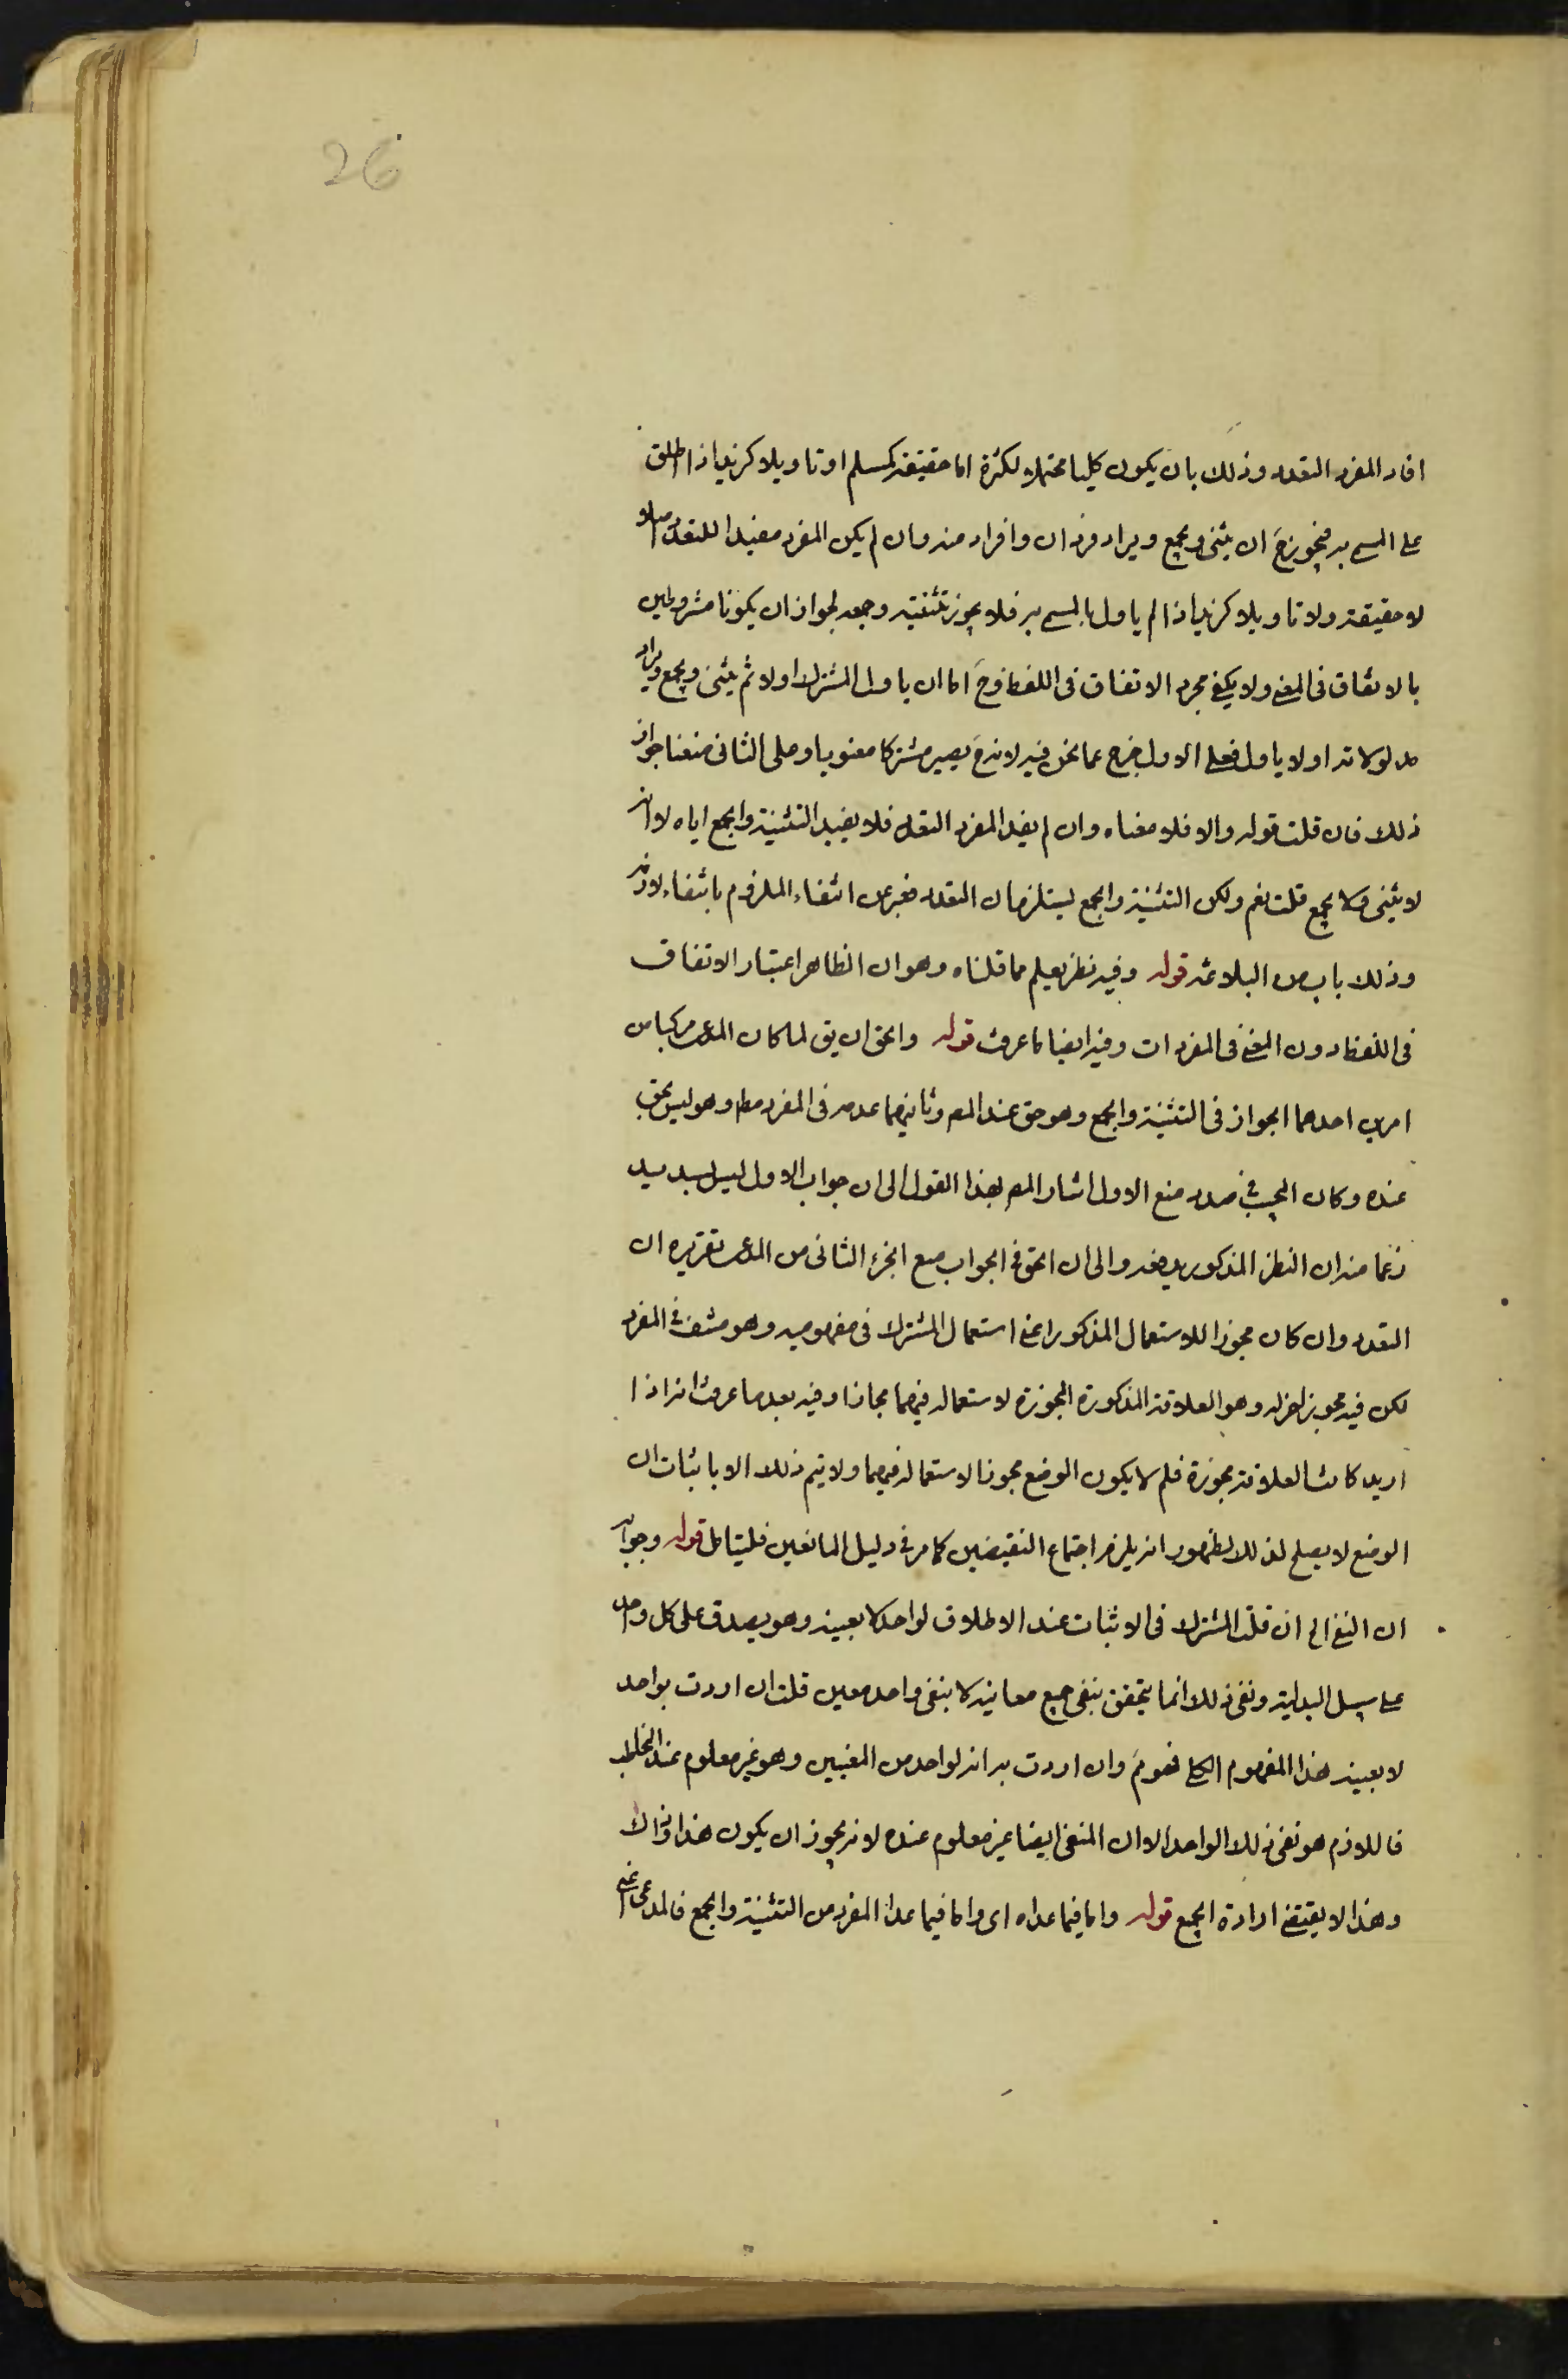 26
افاد المفرد التعدد وذلك بان يكون كليا محتملا لكثرة اما حقيقة كمسلم او تاويلا كزيد اذا اطلق
على المسمى به فيجوز ح ان يثنى ويجمع ويراد فردان وافراد منه وان لم يكن المفرد مفيدا للتعدد اصلا
لا حقيقة ولا تاويلا كزيد اذا لم ياول بالمسمى به فلا يجوز تثنيته وجمعه لجواز ان يكونا مشروطين
بالاتفاق فى المعنى ولا يكفى مجرد الاتفاق فى اللفظ وح اما ان ياول المشترك اولا ثم يثنى ويجمع ويراد
مدلولاته او لا ياول فعلى الاول خرج عما نحن فيه لانه ح يصير مشتركا معنويا وعلى الثانى منعنا جواز
ذلك فان قلت قوله والا فلا معناه وان لم يفد المفرد التعدد فلا يفيد التثنية والجمع اياه لا انه
لا يثنى ولا يجمع قلت نعم ولكن التثنية والجمع يستلزمان التعدد فعبر عن انتفاء الملزوم بانتفاء لازمه
وذلك باب من البلاغة قوله وفيه نظر يعلم مما قلناه وهو ان الظاهر اعتبار الاتفاق
فى اللفظ دون المعنى فى المفردات وفيه ايضا ما عرفت قوله والحق ان يق لما كان المدعى مركبا من
امرين احدهما الجواز فى التثنية والجمع وهو حق عند المص وثانيهما عدمه فى المفرد مط وهو ليس بحق
عنده وكان المجيب فى صدد منع الاول اشار المص بهذا القول الى ان جواب الاول ليس بسديد
زعما منه ان النظر المذكور يدفعه والى ان الحق فى الجواب منع الجزء الثانى من المدعى تقريره ان
التعدد وان كان مجوزا للاستعمال المذكور اعنى استعمال المشترك فى مفهوميه وهو منتف فى المفرد
لكن فيه مجوز اخر له وهو العلاقة المذكورة المجوزة لاستعماله فيهما مجازا وفيه بعد ما عرفت انه اذا
اريد كانت العلاقة مجوزة فلم لا يكون الوضع مجوزا لاستعماله فيهما ولا يتم ذلك الا باثبات ان
الوضع لا يصلح لذلك لظهور انه يلزم اجتماع النقيضين كما مر فى دليل المانعين فليتامل قوله وجوابه
ان النفى الخ ان قلت المشترك فى الاثبات عند الاطلاق لواحد لا بعينه وهو يصدق على كل واحد
على سبيل البدلية ونفى ذلك انما يتحقق بنفى جميع معانيه لا بنفى واحد معين قلت ان اردت بواحد
لا بعينه هذا المفهوم الكلى فهو م وان اردت به انه لواحد من المعنيين وهو غير معلوم عند المخاطب
فاللازم هو نفى ذلك الواحد الا ان المنفى ايضا غير معلوم عنده لانه يجوز ان يكون هذا وذاك
وهذا لا يقتضى ارادة الجميع قوله واما فيما عداه اى واما فيما عدا المفرد من التثنية والجمع فالمدعى اعنى